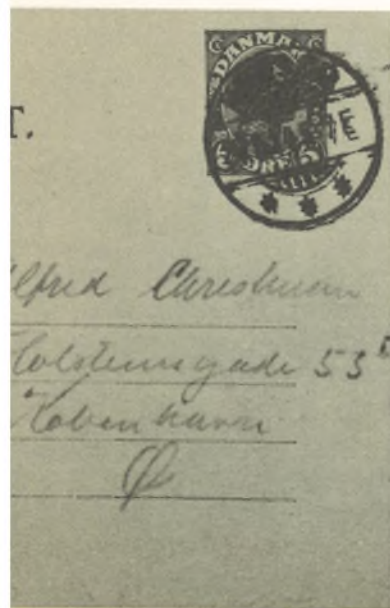 DANMARK
T.
lfred Christensen
olsteinsgade 53
København
Ø